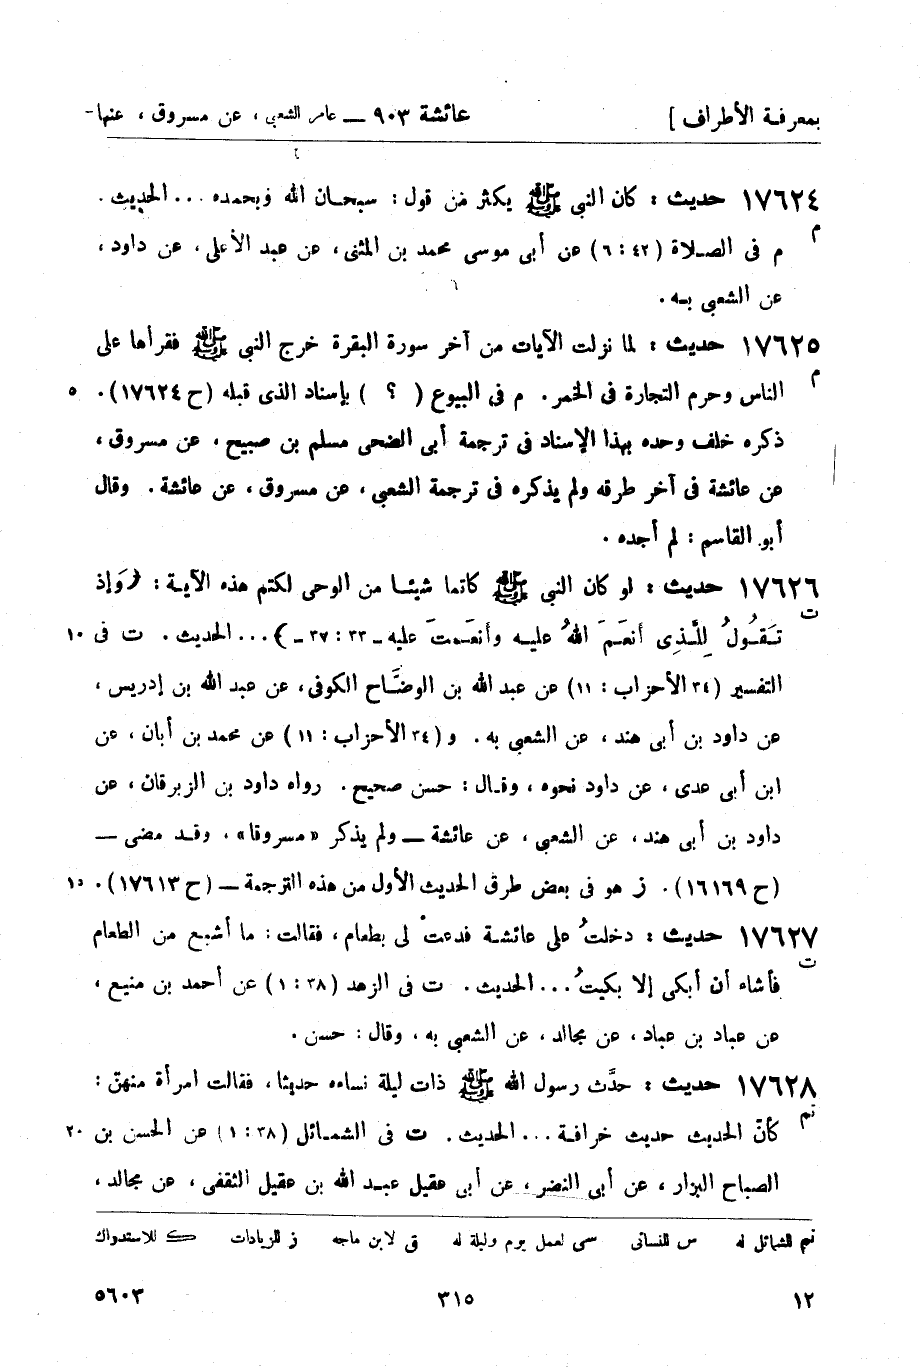 بمعرفة الأطراف ] عائشة ٩٠٣ — عامر الشعبي ، عن مسروق ، عنها-
١٧٦٢٤ حديث : كان النبي ﷺ يكثر من قول : سبحان الله وبحمده ... الحديث .
م م فى الصلاة (٤٢ : ٦) عن أبي موسى محمد بن المثنى ، عن عبد الأعلى ، عن داود ،
عن الشعبي به .
١٧٦٢٥ حديث : لما نزلت الآيات من آخر سورة البقرة خرج النبي ﷺ فقرأها على
م الناس وحرم التجارة فى الخمر . م فى البيوع ( ؟ ) بإسناد الذى قبله (ح ١٧٦٢٤) . ٥
ذكره خلف وحده بهذا الإسناد فى ترجمة أبى الضحى مسلم بن صبيح ، عن مسروق ،
عن عائشة فى آخر طرقه ولم يذكره فى ترجمة الشعبي ، عن مسروق ، عن عائشة . وقال
أبو القاسم : لم أجده .
١٧٦٢٦ حديث : لو كان النبي ﷺ كاتما شيئا من الوحى لكتم هذه الآية : ﴿وَإذ
ت تَقُولُ لِلَّذِى أنعَمَ اللهُ عليه وأنعَمتَ عليه ـ ٣٣ : ٣٧ ـ﴾ ... الحديث . ت فى ١٠
التفسير (٣٤ الأحزاب : ١١) عن عبد الله بن الوضَّاح الكوفى ، عن عبد الله بن إدريس ،
عن داود بن أبى هند ، عن الشعبي به . و (٣٤ الأحزاب : ١١) عن محمد بن أبان ، عن
ابن أبى عدى ، عن داود نحوه ، وقال : حسن صحيح . رواه داود بن الزبرقان ، عن
داود بن أبى هند ، عن الشعبي ، عن عائشة — ولم يذكر «مسروقا» ، وقد مضى —
(ح ١٦١٦٩) . ز هو فى بعض طرق الحديث الأول من هذه الترجمة — (ح ١٧٦١٣) . ١٥
١٧٦٢٧ حديث : دخلتُ على عائشة فدعتْ لى بطعام ، فقالت : ما أشبع من الطعام
ت فأشاء أن أبكى إلا بكيتُ ... الحديث . ت فى الزهد (٣٨ : ١) عن أحمد بن منيع ،
عن عباد بن عباد ، عن مجالد ، عن الشعبي به ، وقال : حسن .
١٧٦٢٨ حديث : حدَّث رسول الله ﷺ ذات ليلة نساءه حديثا ، فقالت امرأة منهن :
تم كأنّ الحديث حديث خرافة ... الحديث . ت فى الشمائل (٣٨ : ١) عن الحسن بن ٢٠
الصباح البزار ، عن أبى النضر ، عن أبى عقيل عبد الله بن عقيل الثقفى ، عن مجالد ،
تم للشمائل له س للنسائى سى لعمل يوم وليلة له ق لابن ماجه ز للزيادات ك للاستدراك
١٢ ٣١٥ ٥٦٠٣